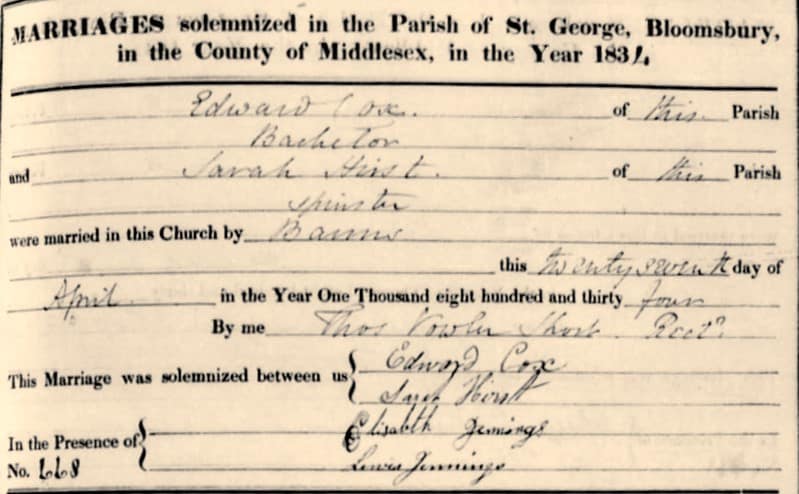 MARRIAGES solemnized in the Parish of St. George, Bloomsbury,
in the County of Middlesex, in the Year 1834
Edward Cox. of this Parish
Bachelor
and Sarah Hirst. of this Parish
Spinster
were married in this Church by Banns
this twenty seventh day of
April in the Year One Thousand eight hundred and thirty four
By me Thos Vowler Short Rectr
This Marriage was solemnized between us { Edward Cox
Sarah Hirst
Elisabeth Jennings
In the Presence of {
No. 668 Lewis Jennings